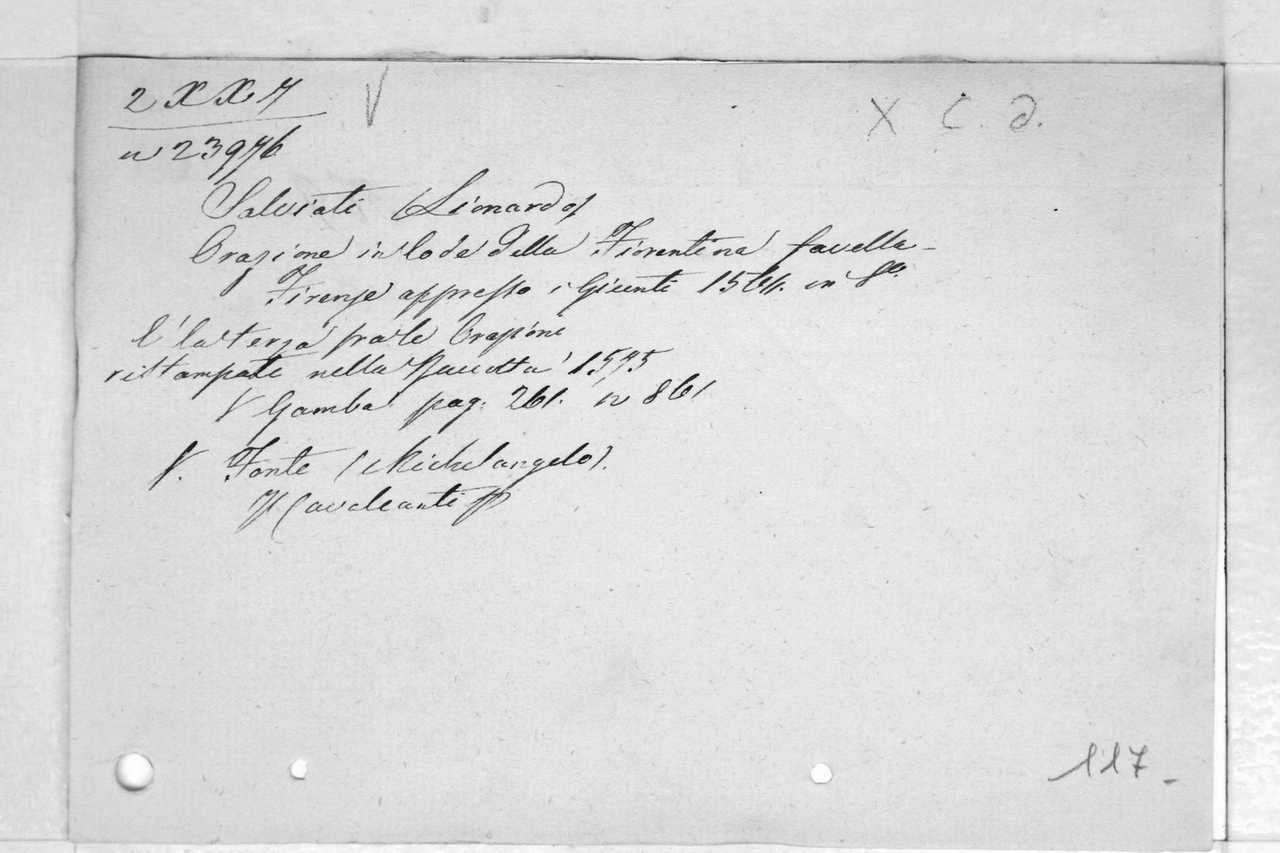 2 XX 4
V
X C. d.
n 23976
Salviati (Lionardo)
Orazione in lode della Fiorentina favella
Firenze appresso i Giunti 1564. in 8º.
E' la terza fra le Orazioni
ristampate nella Raccolta 1575
V Gamba pag. 261. n 861
V. Fonte (Michelangelo).
Cavalcanti
117